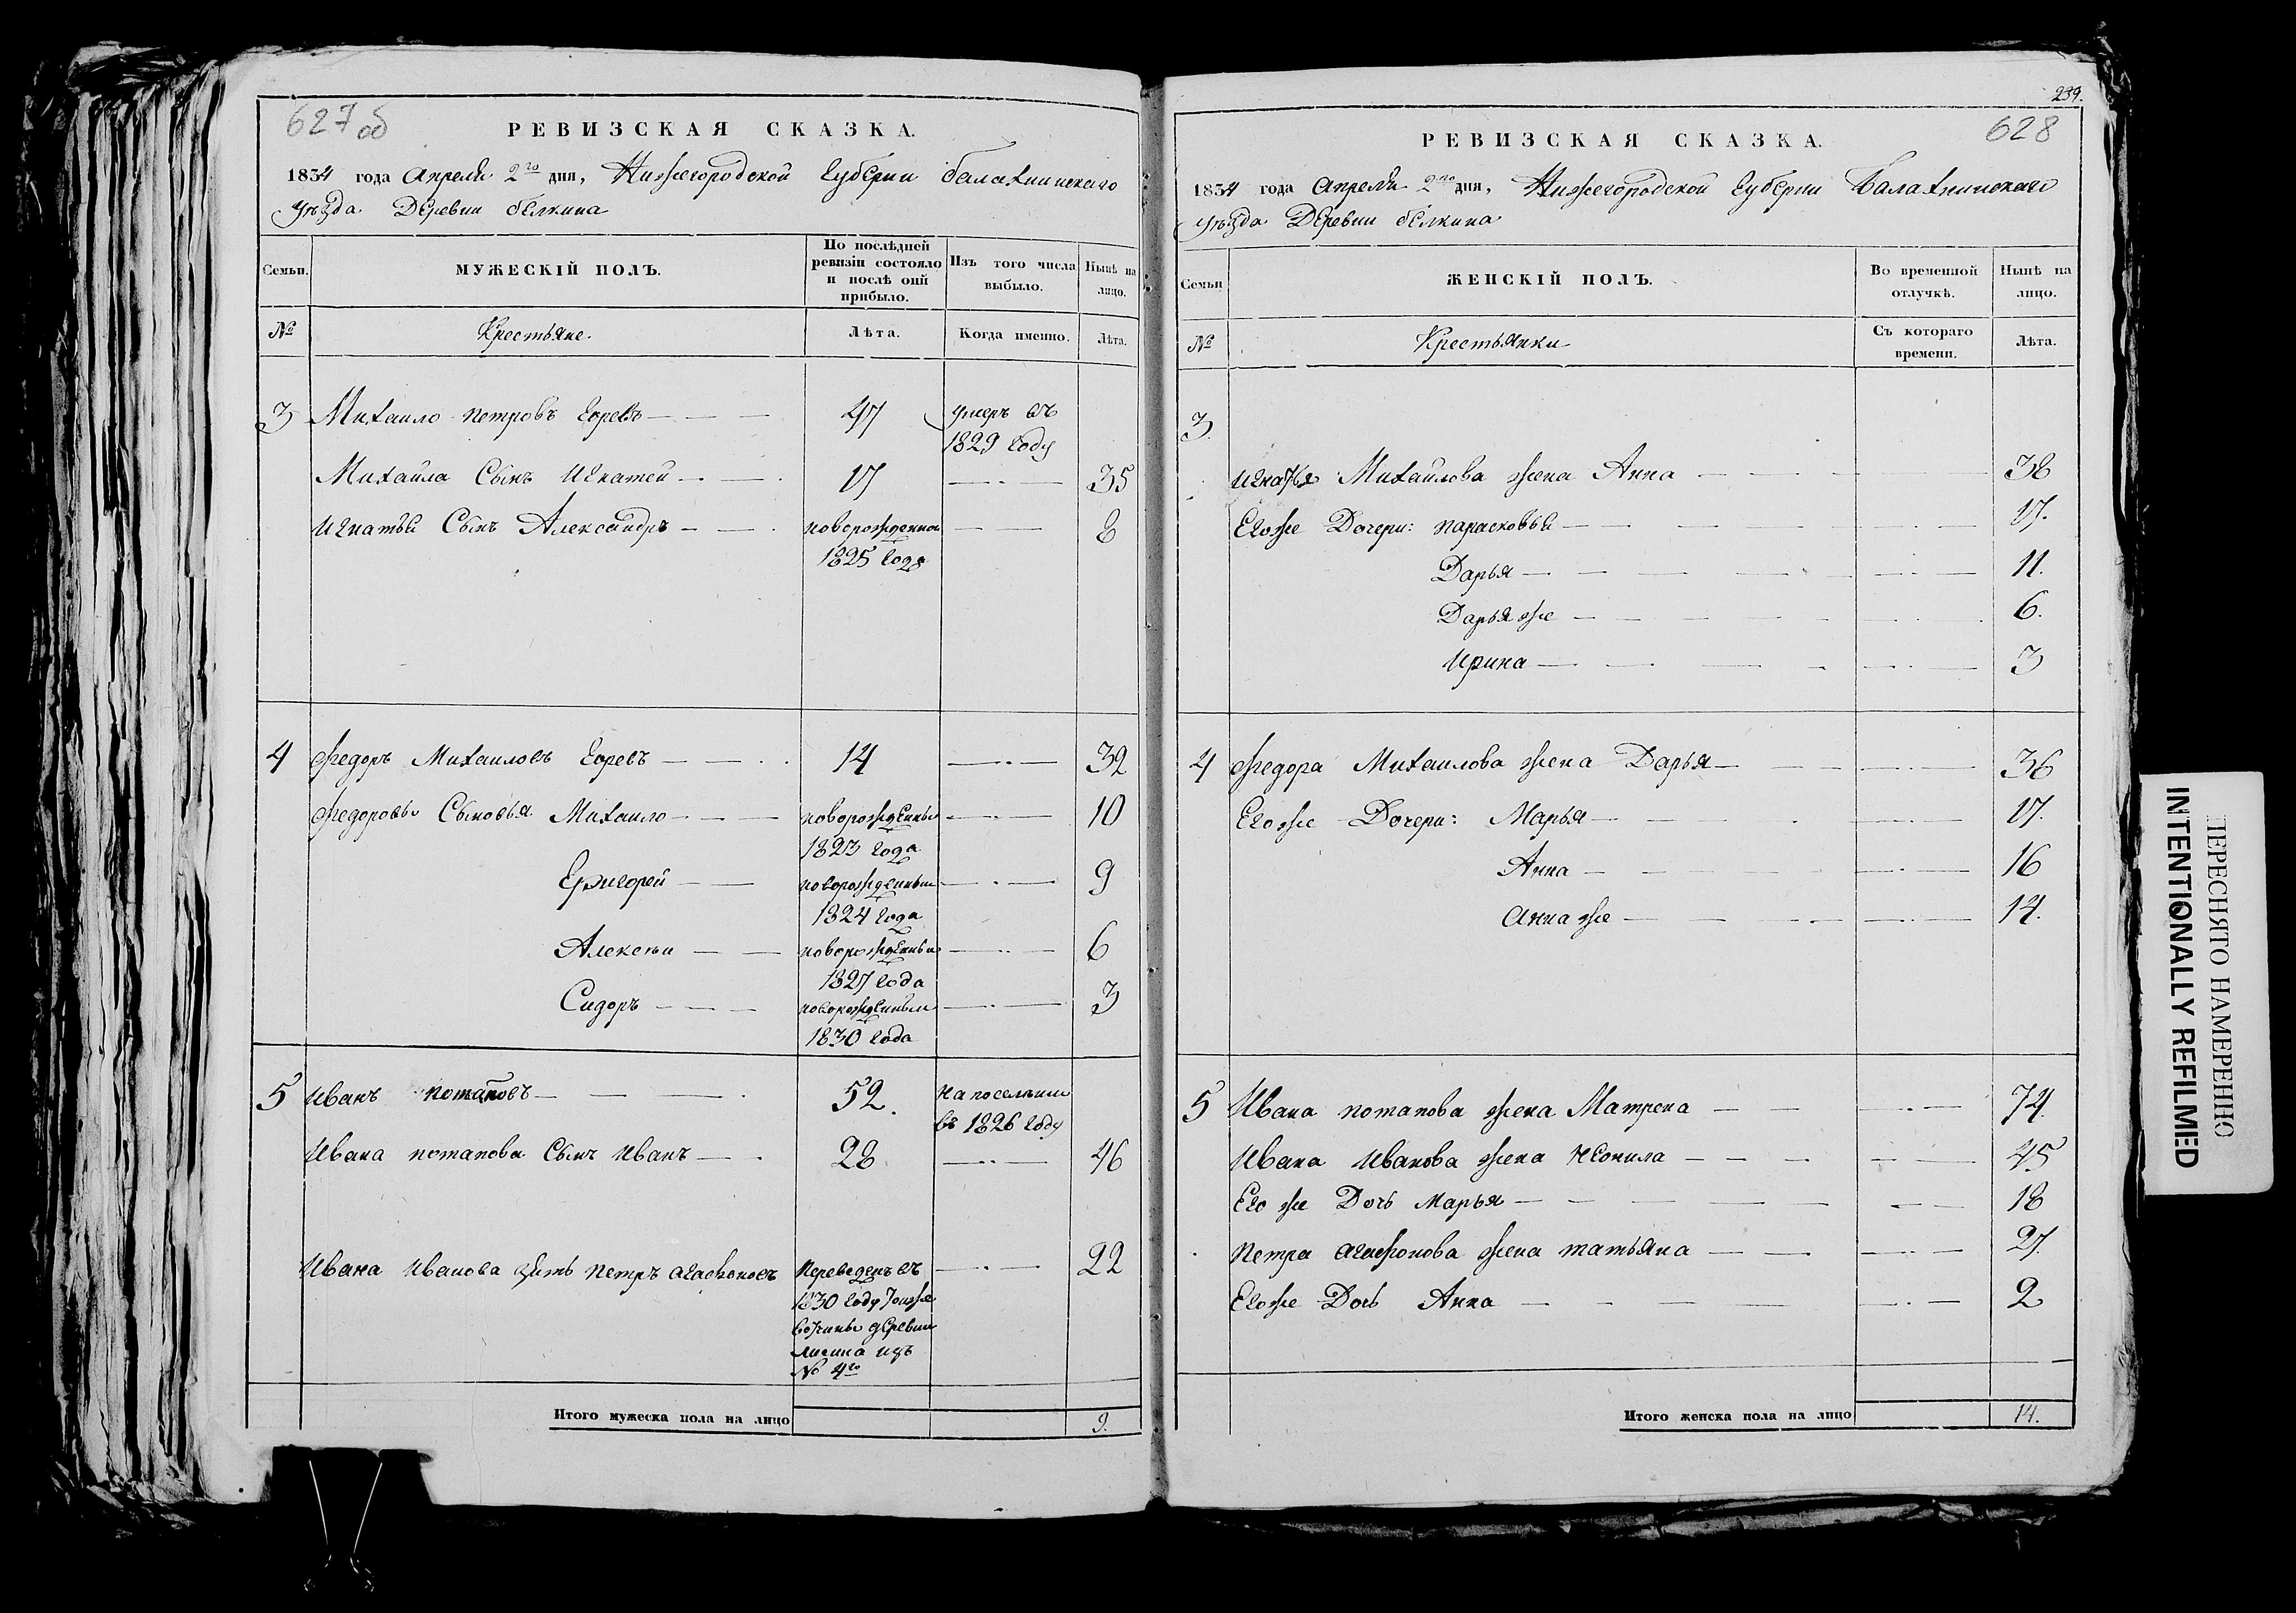 627 об
РЕВИЗСКАЯ СКАЗКА.
1834 года Апреля 2го дня, Нижегородской Губернии балахнинскаго
уѣзда Деревни белкина
Семьи.
МУЖЕСКІЙ ПОЛЪ.
По послѣдней ревизіи состояло и послѣ оній прибыло.
Изъ того числа выбыло.
Нынѣ на лицо.
№
Крестьяне.
Лѣта.
Когда именно.
Лѣта.
3 Михаило петровъ 47 умеръ въ
1829 году
Михаила Сынъ Игнатей 17 35
Игнатья Сынъ Александръ новорожденной 8
1825 года
4 Федоръ Михаиловъ 14 32
Федоровы Сыновья Михаило новорожденный 10
1823 года
Григорей новорожденный 9
1824 года
Алексеи новорожденный 6
1827 года
Сидоръ новорожденный 3
1830 года
5 Иванъ потаповъ 52. на поселении
въ 1826 году
Ивана потапова Сынъ Иванъ 28 46
Ивана Иванова зять петръ агафоновъ переведенъ въ 22
1830 году тоиже
вотчины деревни
изъ
№ 4го
Итого мужеска пола на лицо 9.
239.
628
РЕВИЗСКАЯ СКАЗКА.
1834 года Апреля 2го дня, Нижегородской Губернии Балахнинскаго
уѣзда Деревни белкина
Семьи
ЖЕНСКІЙ ПОЛЪ.
Во временной отлучкѣ.
Нынѣ на лицо.
№
Крестьянки
Съ котораго времени.
Лѣта.
3.
Игнатья Михаилова жена Анна 38
Егоже Дочери: парасковья 17.
Дарья 11.
Дарья же 6.
Ирина 3
4 Федора Михаилова жена Дарья 36
Егоже Дочери: Марья 17.
Анна 16
Анна же 14.
5 Ивана потапова жена Матрена 74
Ивана Иванова жена 45
Его же Дочь Марья 18
Петра агафонова жена татьяна 27.
Егоже Дочь Анна 2
Итого женска пола на лицо 14.
ПЕРЕСНЯТО НАМЕРЕННО
INTENTIONALLY REFILMED